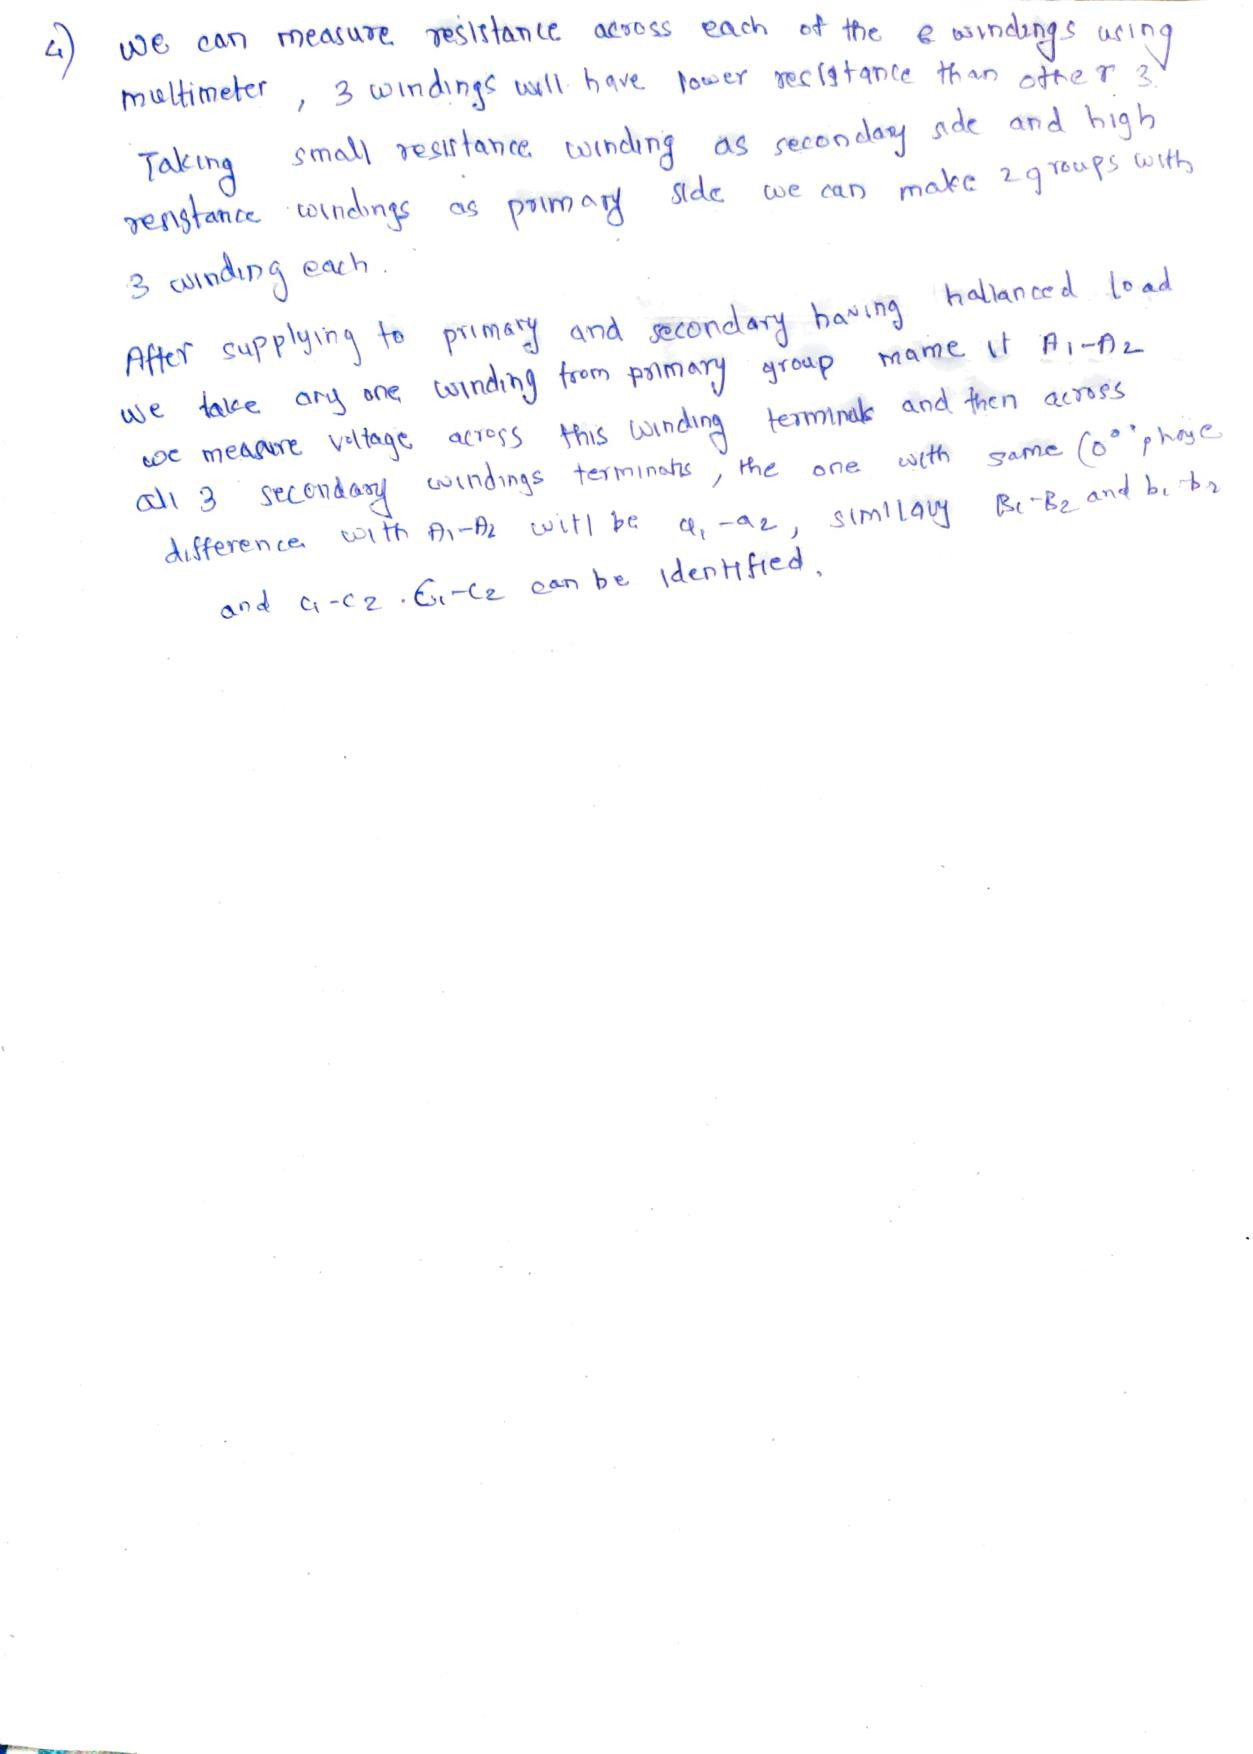 4) we can measure resistance across each of the 6 windings using
multimeter , 3 windings will have lower resistance than other 3.
Taking small resistance winding as secondary side and high
resistance windings as primary side we can make 2 groups with
3 winding each .
After supplying to primary and secondary having ballanced load
we take any one winding from primary group name it A1-A2
we measure voltage across this winding terminals and then across
all 3 secondary windings terminals , the one with same (0° phase
difference with A1-A2 will be a1-a2 , similarly B1-B2 and b1-b2
and c1-c2 . C1-C2 can be identified .